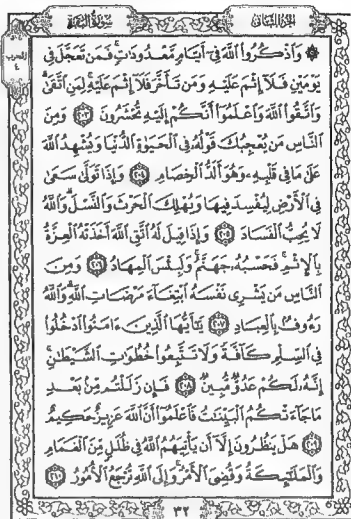 الجزء الثاني سورة البقرة
الحزب
٤
۞ وَاذْكُرُوا اللَّهَ فِي أَيَّامٍ مَعْدُودَاتٍ فَمَنْ تَعَجَّلَ فِي
يَوْمَيْنِ فَلَا إِثْمَ عَلَيْهِ وَمَنْ تَأَخَّرَ فَلَا إِثْمَ عَلَيْهِ لِمَنِ اتَّقَى
وَاتَّقُوا اللَّهَ وَاعْلَمُوا أَنَّكُمْ إِلَيْهِ تُحْشَرُونَ ٢٠٣ وَمِنَ
النَّاسِ مَنْ يُعْجِبُكَ قَوْلُهُ فِي الْحَيَوٰةِ الدُّنْيَا وَيُشْهِدُ اللَّهَ
عَلَىٰ مَا فِي قَلْبِهِ وَهُوَ أَلَدُّ الْخِصَامِ ٢٠٤ وَإِذَا تَوَلَّىٰ سَعَىٰ
فِي الْأَرْضِ لِيُفْسِدَ فِيهَا وَيُهْلِكَ الْحَرْثَ وَالنَّسْلَ وَاللَّهُ
لَا يُحِبُّ الْفَسَادَ ٢٠٥ وَإِذَا قِيلَ لَهُ اتَّقِ اللَّهَ أَخَذَتْهُ الْعِزَّةُ
بِالْإِثْمِ فَحَسْبُهُ جَهَنَّمُ وَلَبِئْسَ الْمِهَادُ ٢٠٦ وَمِنَ
النَّاسِ مَنْ يَشْرِي نَفْسَهُ ابْتِغَاءَ مَرْضَاتِ اللَّهِ وَاللَّهُ
رَءُوفٌ بِالْعِبَادِ ٢٠٧ يَٰأَيُّهَا الَّذِينَ ءَامَنُوا ادْخُلُوا
فِي السِّلْمِ كَافَّةً وَلَا تَتَّبِعُوا خُطُوَٰتِ الشَّيْطَٰنِ
إِنَّهُ لَكُمْ عَدُوٌّ مُبِينٌ ٢٠٨ فَإِنْ زَلَلْتُمْ مِنْ بَعْدِ
مَا جَاءَتْكُمُ الْبَيِّنَٰتُ فَاعْلَمُوا أَنَّ اللَّهَ عَزِيزٌ حَكِيمٌ
٢٠٩ هَلْ يَنْظُرُونَ إِلَّا أَنْ يَأْتِيَهُمُ اللَّهُ فِي ظُلَلٍ مِنَ الْغَمَامِ
وَالْمَلَٰئِكَةُ وَقُضِيَ الْأَمْرُ وَإِلَى اللَّهِ تُرْجَعُ الْأُمُورُ ٢١٠
٣٢